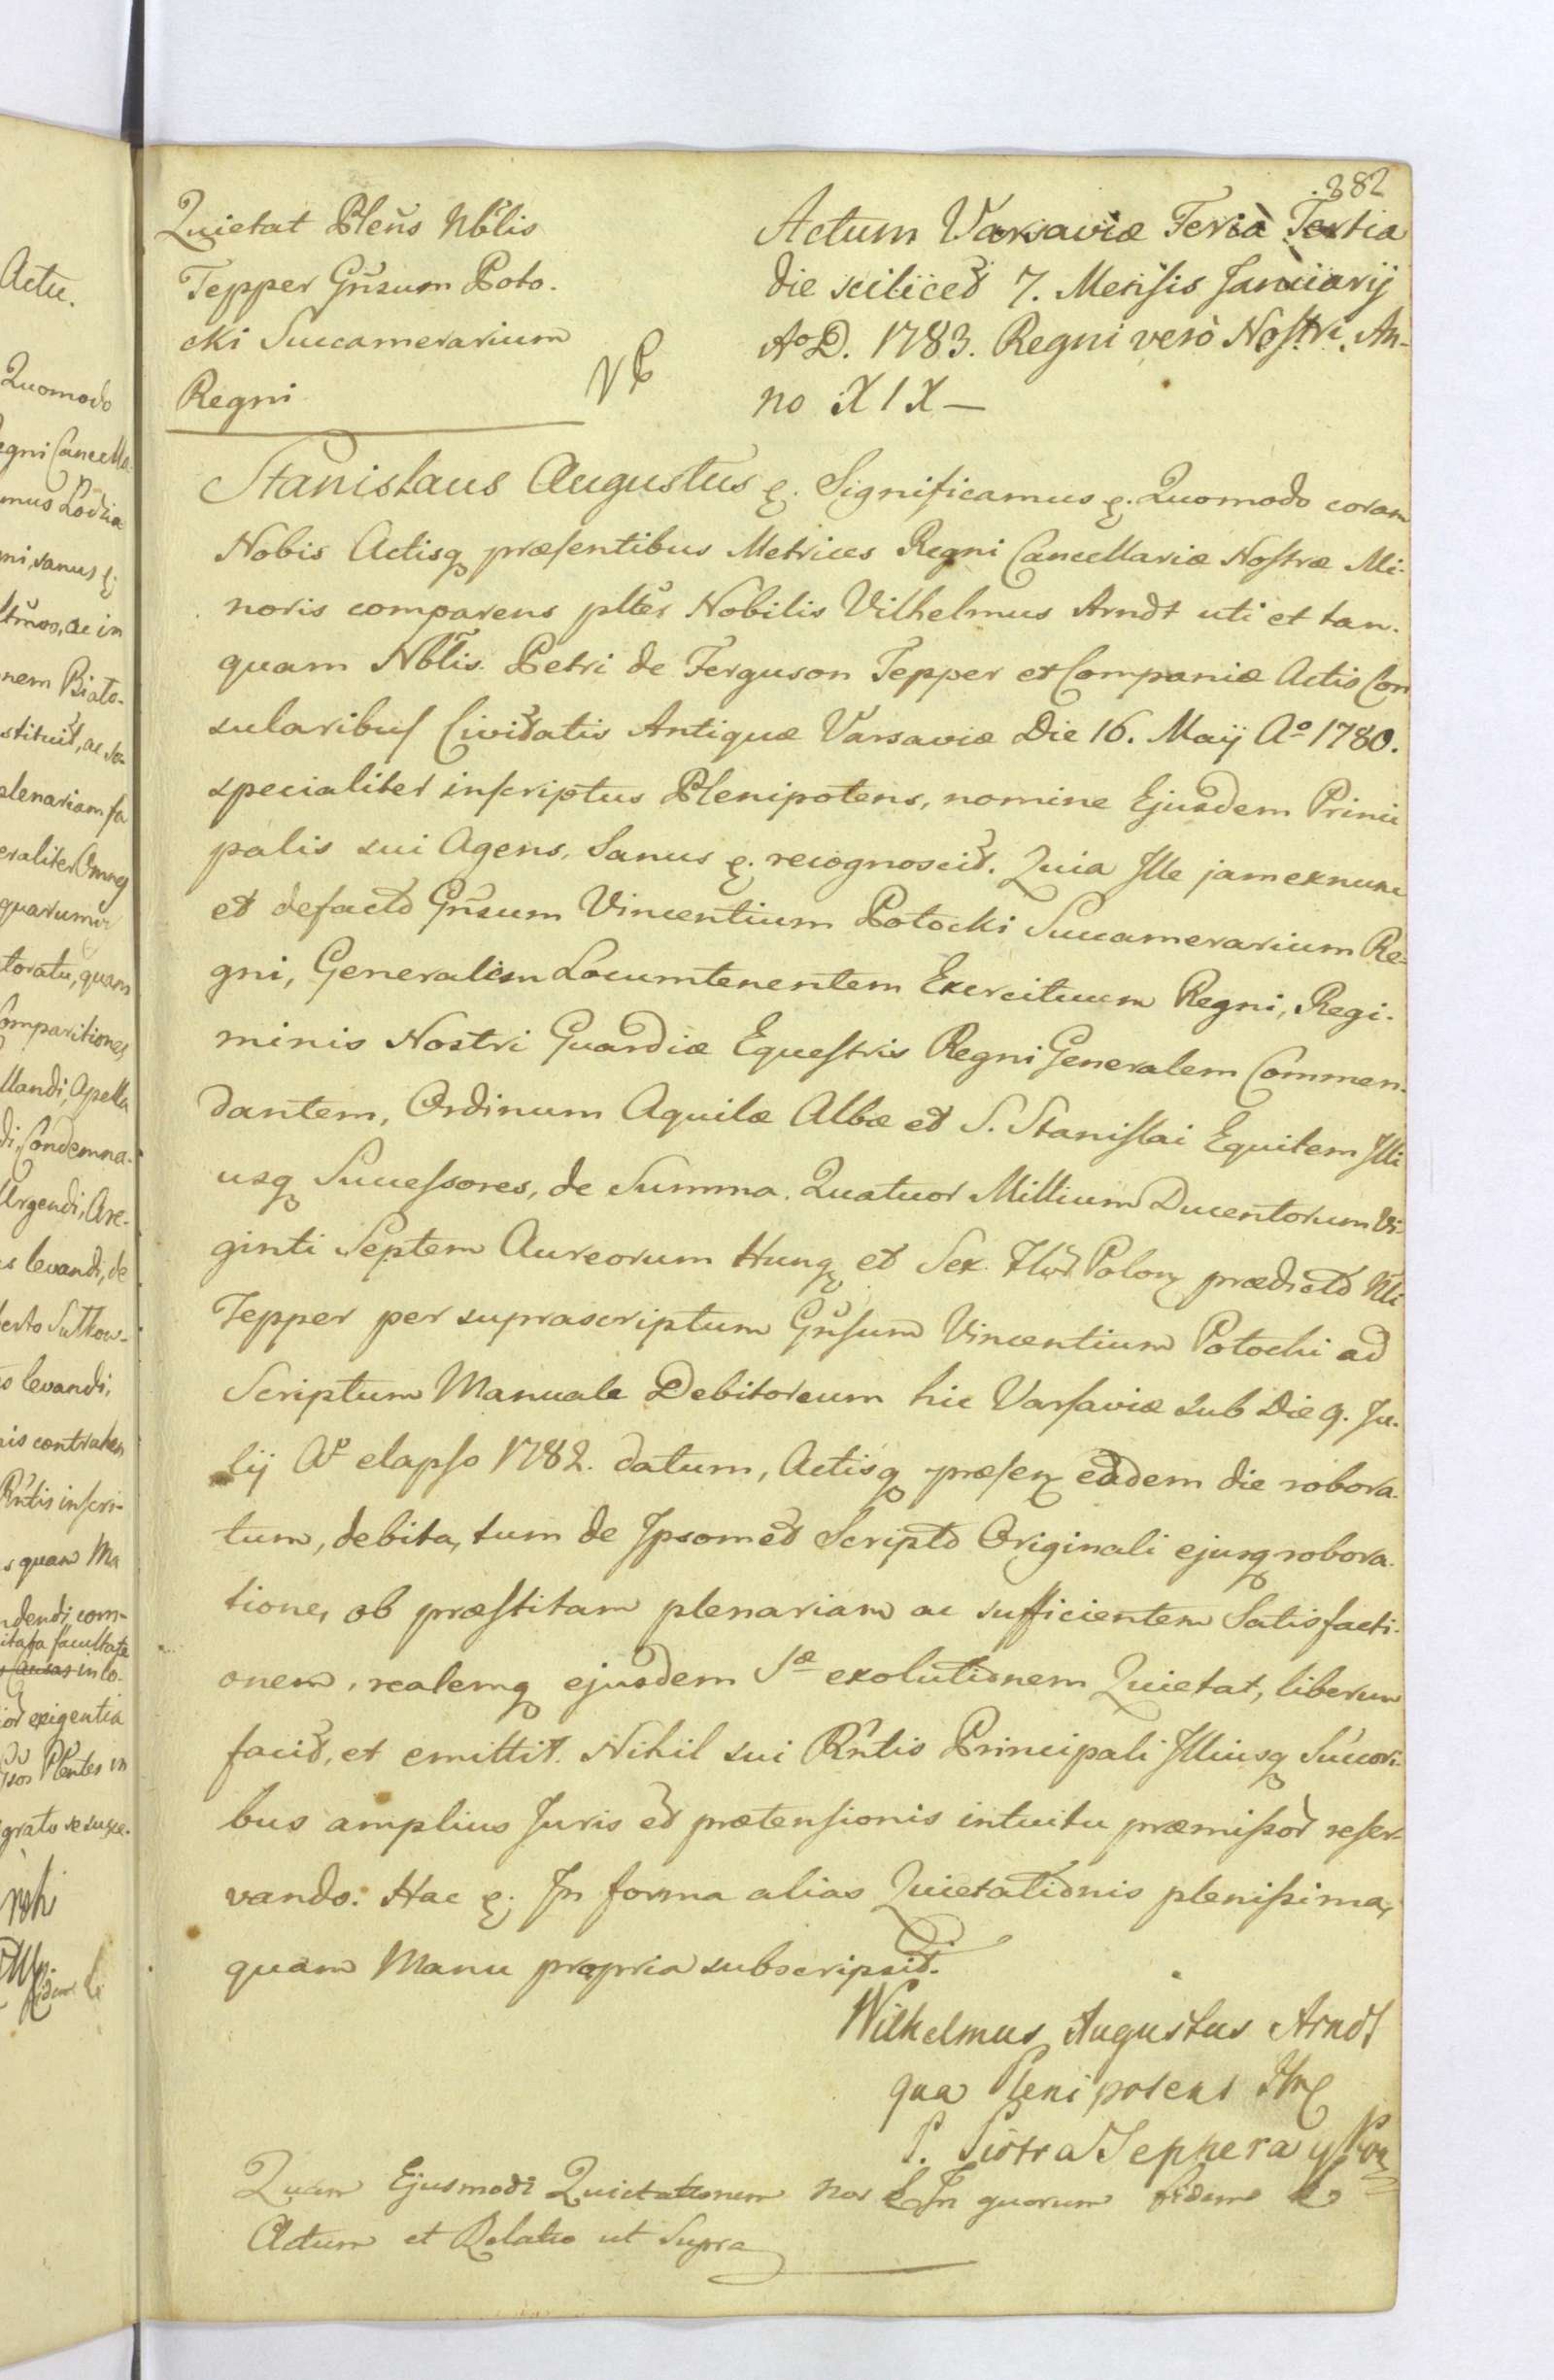 282
Quietat Pleñs Nb̃lis
Tepper Gñsum Poto-
cki Succamerarium
Regni
Actum Varsaviæ Feria Tertia
die scilicet 7. Mensis Januarij
Aº D. 1783. Regni verò Nostri. An-
no XIX —
Stanislaus Augustus &. Significamus &. Quomodo coram
Nobis Actisq præsentibus Metrices Regni Cancellariæ Nostræ Mi-
noris comparens pltẽr Nobilis Vilhelmus Arndt uti et tan-
quam Nb̃lis. Petri de Ferguson Tepper et Companiæ Actis Con
sularibus Civitatis Antiquæ Varsaviæ Die 16. Maÿ Aº 1780.
specialiter inscriptus Plenipotens, nomine Ejusdem Princi
palis sui Agens, Sanus &. recognoscit. Quia Ille jamexnunc
et defacto Gñsum Vincentium Potocki Succamerarium Re-
gni, Generalem Locumtenentem Exercituum Regni, Regi-
minis Nostri Guardiæ Equestris Regni Generalem Commen-
dantem, Ordinum Aquilæ Albæ et S. Stanislai Equitem Illi
usq Successores, de Summa Quatuor Millium Ducentorum Vi-
ginti Septem Aureorum Hung et Sex Flor Polon prædicto Nli
Tepper per suprascriptum Gñsum Vincentium Potocki ad
Scriptum Manuale Debitoreum hic Varsaviæ sub Die 9. Ju-
lij Aº elapso 1782. datum, Actisq præsen eadem die robora-
tum, debita, tum de Ipsomet Scripto Originali ejusq robora-
tione, ob præstitam plenariam ac sufficientem Satisfacti-
onem, realemq ejusdem Sæ exolutionem Quietat, liberum
facit, et emittit. Nihil sui Rñtis Principali Illiusq Succori-
bus amplius Juris et prætensionis intuitu præmissor reser-
vando. Hac &. In forma alias Quietationis plenissima,
quam Manu propria subscripsit.
Wilhelmus Augustus Arndt
qua Plenipotens
P. Piotra Teppera y
Quam Ejusmodi Quietationem nos & In quorum fidem &
Actum et Relatio ut Supra
Actu.
Quomodo
egni Cancella-
mus Lodzia